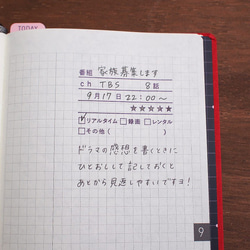 TODAY
番組 家族募集します
ch TBS 8話
9月17日 22:00〜
★★★★★
☑リアルタイム □録画 □レンタル
□その他( )
ドラマの感想を書くときに
ひとおしして記しておくと
あとから見返しやすいですヨ!
9